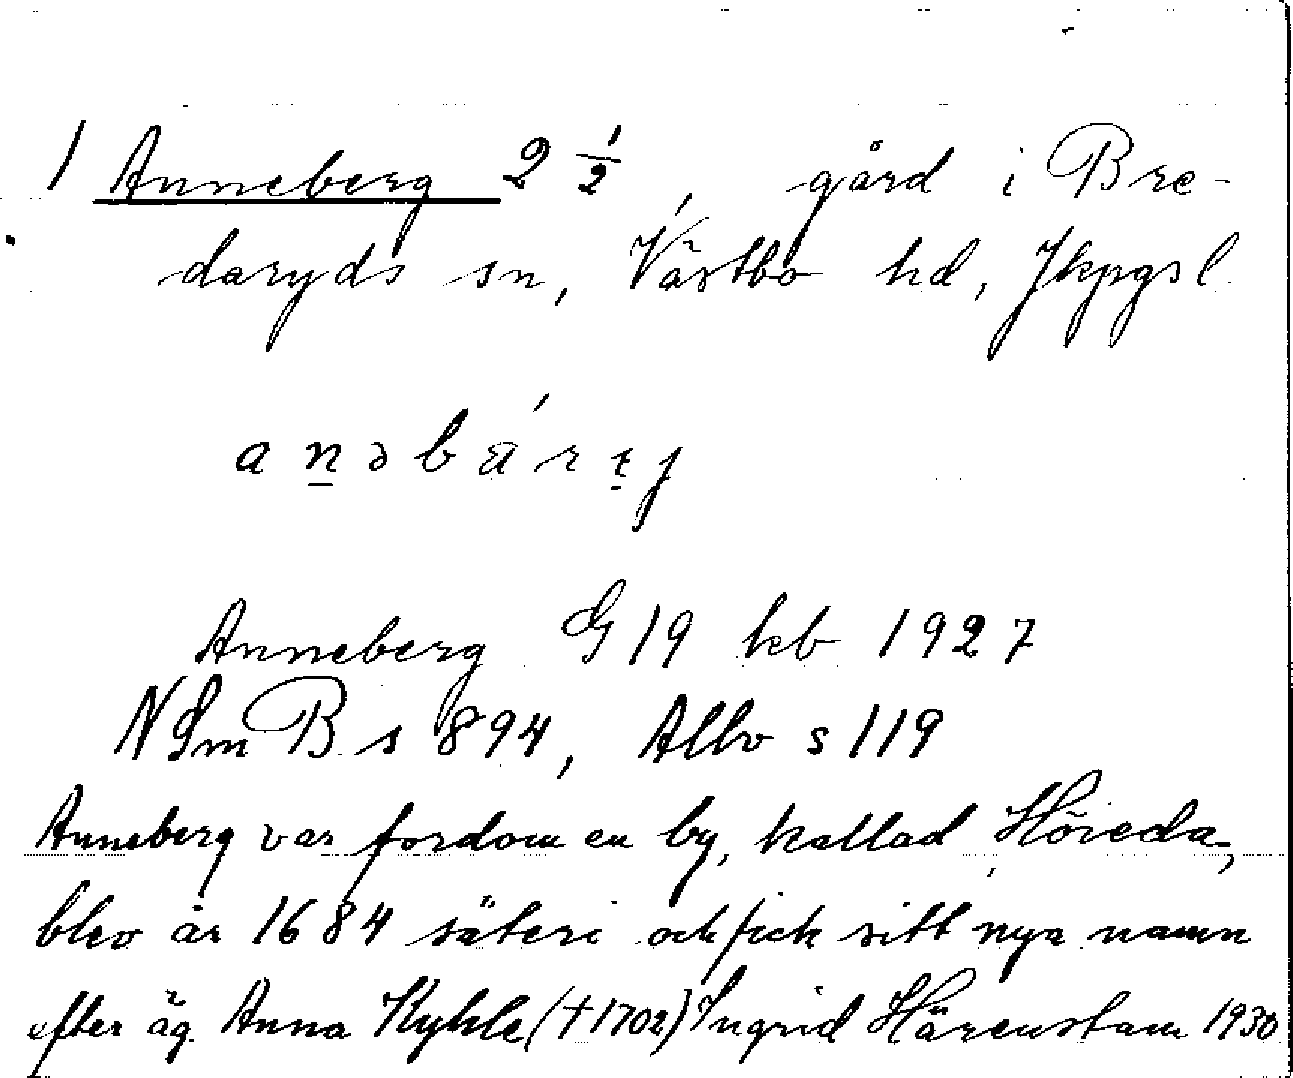 1 Anneberg 2 ½, gård i Bre-
daryds sn, Västbo hd, Jkpgsl
Anneberg G 19 kb 1927
NSmB s 894, Allv s 119
Anneberg var fordom en by, kallad Höreda,
blev år 1684 säteri och fick sitt nya namn
efter äg. Anna Kyhle († 1702) Ingrid Härenstam 1930